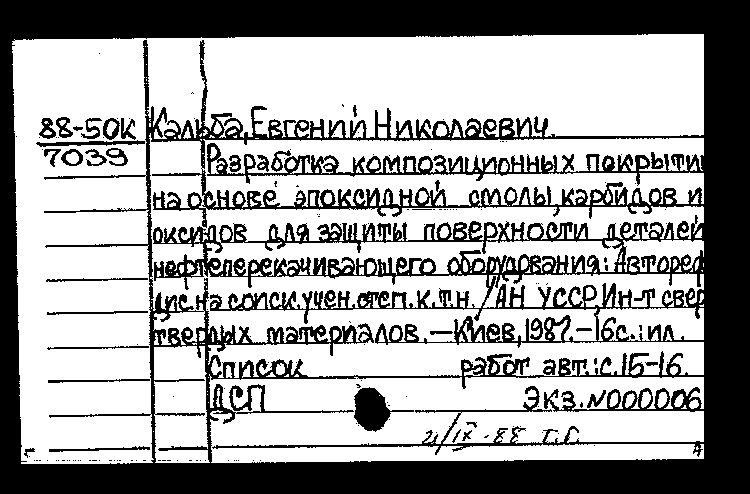 88-50К Кальба, Евгений Николаевич.
7039 Разработка композиционных покрыти
на основе эпоксидной смолы, карбидов и
оксидов для защиты поверхности деталей
нефтеперекачивающего оборудования: Автореф
дис. на соиск. учен. степ. к.т.н. / АН УССР, Ин-т свер
твердых материалов. — Киев, 1987. – 16с.: ил.
Список работ авт.: с. 15-16.
ДСП Экз. N000006
IX-88